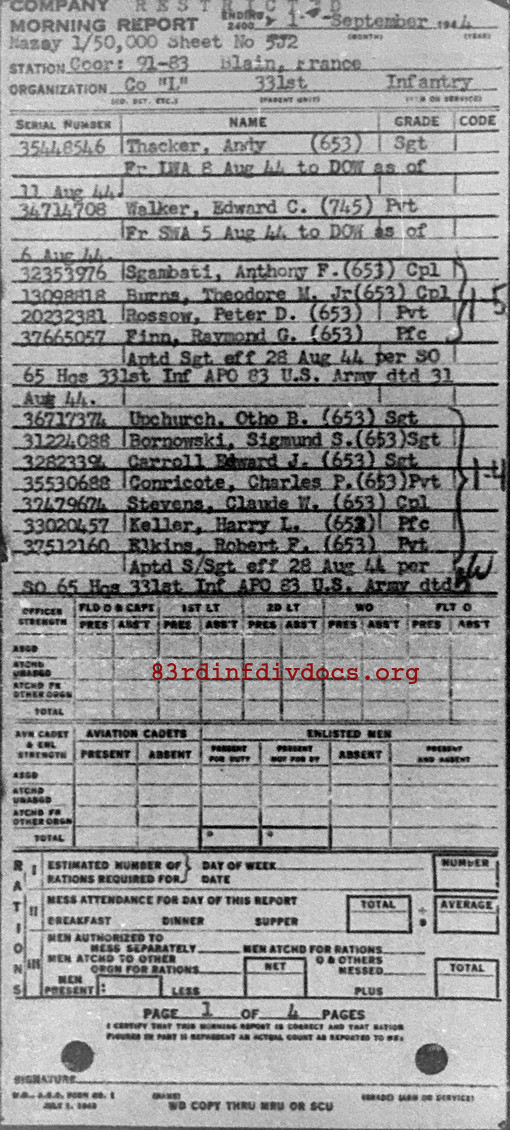 COMPANY RESTRICTED
MORNING REPORT ENDING 2400 1 September 1944
Nazay 1/50,000 Sheet No 532 (MONTH) (YEAR)
STATION Coor: 91-83 Blain, France
ORGANIZATION Co "L" 331st Infantry
(CO. DET. ETC.) (PARENT UNIT) (ARM OR SERVICE)
SERIAL NUMBER NAME GRADE CODE
35448546 Thacker, Andy (653) Sgt
Fr LWA 8 Aug 44 to DOW as of
11 Aug 44.
34714708 Walker, Edward C. (745) Pvt
Fr SWA 5 Aug 44 to DOW as of
6 Aug 44.
32353976 Sgambati, Anthony F.(653) Cpl
13098818 Burns, Theodore M. Jr(653) Cpl
20232381 Rossow, Peter D. (653) Pvt
37665057 Finn, Raymond G. (653) Pfc
Aptd Sgt eff 28 Aug 44 per SO
65 Hqs 331st Inf APO 83 U.S. Army dtd 31
Aug 44.
36717374 Upchurch, Otho B. (653) Sgt
31224088 Bornowski, Sigmund S.(653)Sgt
32823394 Carroll Edward J. (653) Sgt
35530688 Conricote, Charles P.(653)Pvt
37479674 Stevens, Claude W. (653) Cpl
33020457 Keller, Harry L. (653) Pfc
37512160 Elkins, Robert F. (653) Pvt
Aptd S/Sgt eff 28 Aug 44 per
SO 65 Hqs 331st Inf APO 83 U.S. Army dtd
OFFICER STRENGTH FLD O & CAPT 1ST LT 2D LT WO FLT O
PRES ABS'T PRES ABS'T PRES ABS'T PRES ABS'T PRES ABS'T
ASGD
ATCHD UNASGD
83rdinfdivdocs.org
ATCHD FR OTHER ORGN
TOTAL
AVN CADET & ENL STRENGTH AVIATION CADETS ENLISTED MEN
PRESENT ABSENT PRESENT FOR DUTY PRESENT NOT FOR DY ABSENT PRESENT AND ABSENT
ASGD
ATCHD UNASGD
ATCHD FR OTHER ORGN
TOTAL * *
RATIONS
I ESTIMATED NUMBER OF } DAY OF WEEK NUMBER
RATIONS REQUIRED FOR } DATE
II MESS ATTENDANCE FOR DAY OF THIS REPORT TOTAL ÷ AVERAGE
BREAKFAST DINNER SUPPER
III MEN AUTHORIZED TO MESS SEPARATELY MEN ATCHD FOR RATIONS
MEN ATCHD TO OTHER ORGN FOR RATIONS NET O & OTHERS MESSED TOTAL
MEN PRESENT: LESS PLUS
PAGE 1 OF 4 PAGES
I CERTIFY THAT THIS MORNING REPORT IS CORRECT AND THAT RATION
FIGURES IN PART III REPRESENT AN ACTUAL COUNT AS REPORTED TO ME:
SIGNATURE
W.D., A.G.O. FORM NO. 1 (NAME) (GRADE) (ARM OR SERVICE)
JULY 1, 1943 WD COPY THRU MRU OR SCU